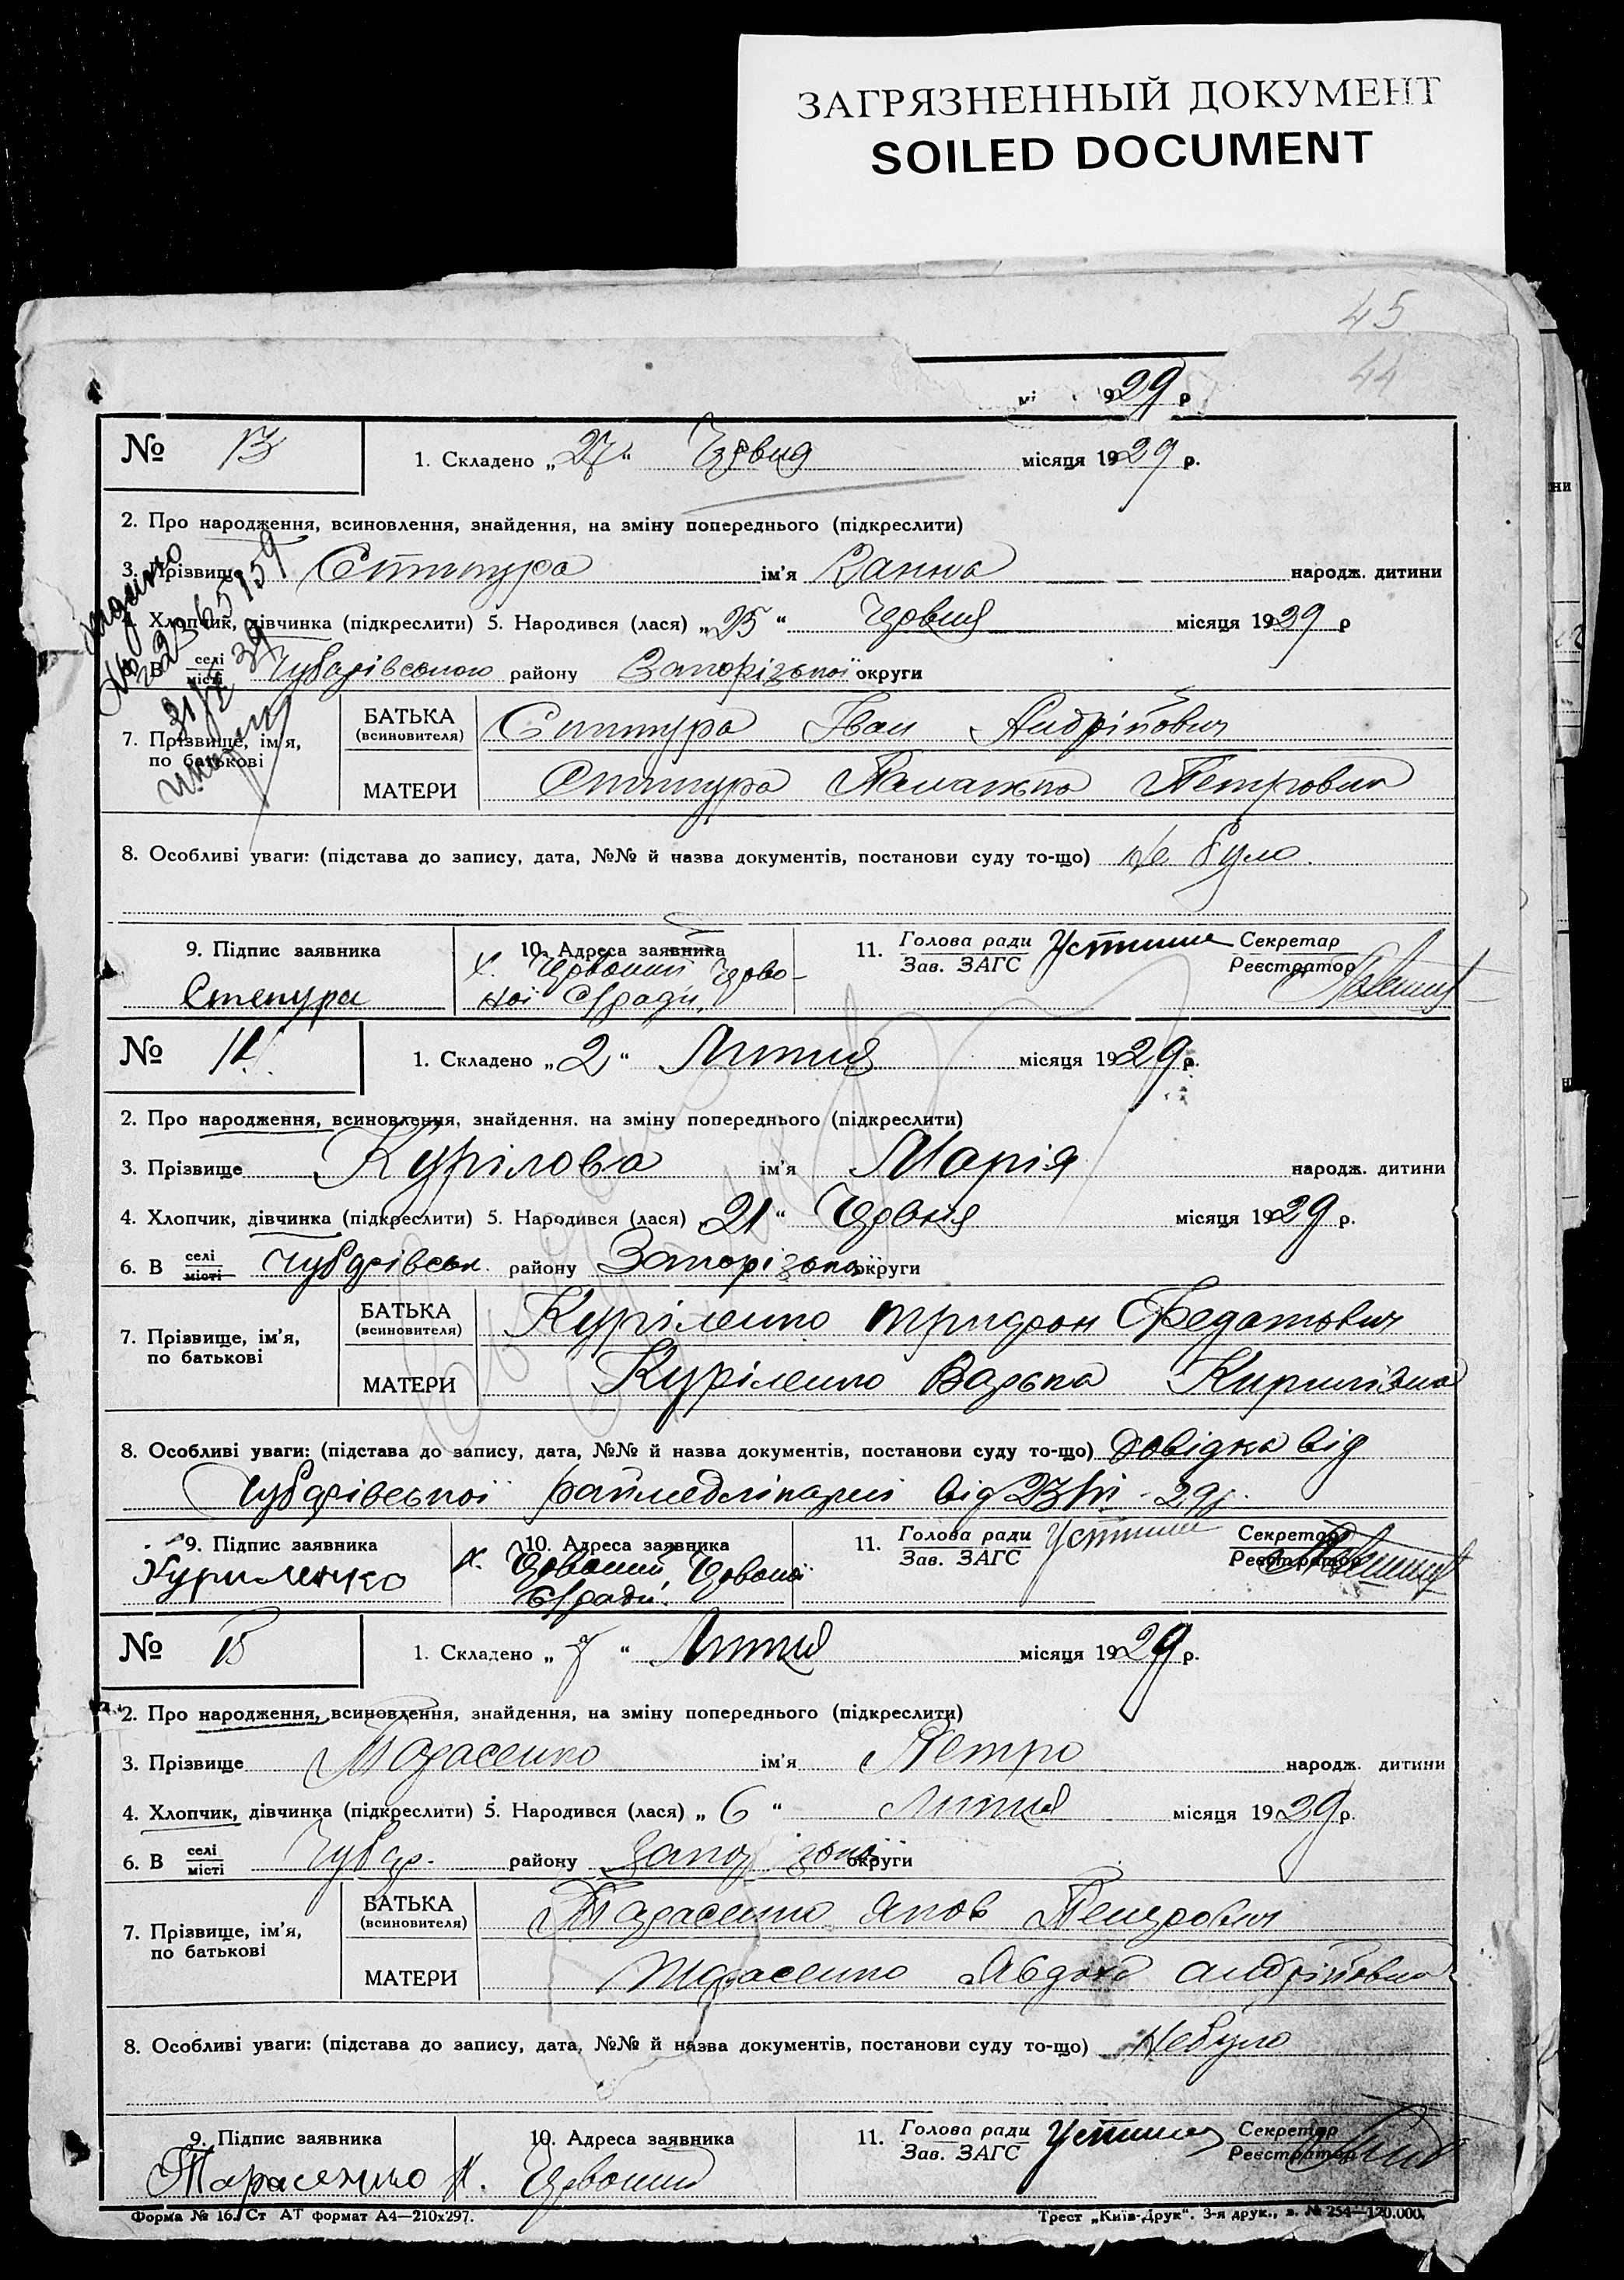 ЗАГРЯЗНЕННЫЙ ДОКУМЕНТ
SOILED DOCUMENT
45
44
29 р
№ 13 1. Складено „27“ Червня місяця 1929 р.
2. Про народження, всиновлення, знайдення, на зміну попереднього (підкреслити)
3. Прізвище Степура ім'я Ганна народж. дитини
4. Хлопчик, дівчинка (підкреслити) 5. Народився (лася) „25“ Червня місяця 1929 р
6. В селі місті Чубарівського району Запорізької округи
7. Прізвище, ім'я, по батькові
БАТЬКА (всиновителя) Степура Іван Андрійович
МАТЕРИ Степура Палажка Петровна
8. Особливі уваги: (підстава до запису, дата, №№ й назва документів, постанови суду то-що) Не було.
9. Підпис заявника 10. Адреса заявника 11. Голова ради Зав. ЗАГС Секретар Реєстратор
Степура
№ 14 1. Складено „2“ Липня місяця 1929 р.
2. Про народження, всиновлення, знайдення, на зміну попереднього (підкреслити)
3. Прізвище Курілова ім'я Марія народж. дитини
4. Хлопчик, дівчинка (підкреслити) 5. Народився (лася) 21“ Червня місяця 1929 р.
6. В селі місті Чубарівськ. району Запорізької округи
7. Прізвище, ім'я, по батькові
БАТЬКА (всиновителя) Куріленко Тридон Федатович
МАТЕРИ Куріленко Варька Кирилівна
8. Особливі уваги: (підстава до запису, дата, №№ й назва документів, постанови суду то-що) Довідка від
Чубарівської раймедлікарні від
9. Підпис заявника 10. Адреса заявника 11. Голова ради Зав. ЗАГС Секретар Реєстратор
Куриленко
№ 15 1. Складено „ “ Липня місяця 1929 р.
2. Про народження, всиновлення, знайдення, на зміну попереднього (підкреслити)
3. Прізвище Тарасенко ім'я Петро народж. дитини
4. Хлопчик, дівчинка (підкреслити) 5. Народився (лася) „6“ Липня місяця 1929 р.
6. В селі місті Чубар. району Запорізької округи
7. Прізвище, ім'я, по батькові
БАТЬКА (всиновителя) Тарасенко Яков Петрович
МАТЕРИ Тарасенко Явдоха Андрійовна
8. Особливі уваги: (підстава до запису, дата, №№ й назва документів, постанови суду то-що) Небуло
9. Підпис заявника 10. Адреса заявника 11. Голова ради Зав. ЗАГС Секретар Реєстратор
Тарасенко
Форма № 16. Ст АТ формат А4—210х297. Трест „Київ-Друк“. 3-я друк., з. № 254—120.000.